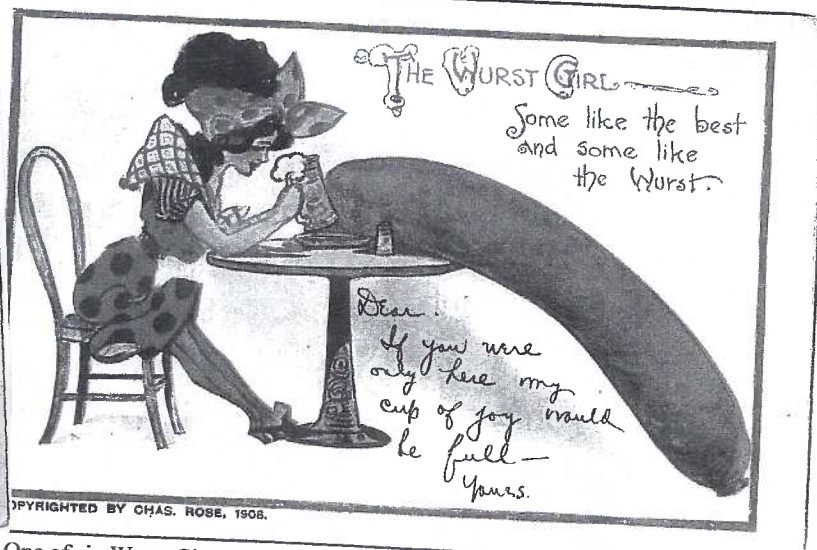 THE WURST GIRL
Some like the best
and some like
the Wurst.
Dear.
If you were
only here my
cup of joy would
be full—
Yours.
OPYRIGHTED BY CHAS. ROSE, 1908.
One of six Wurst